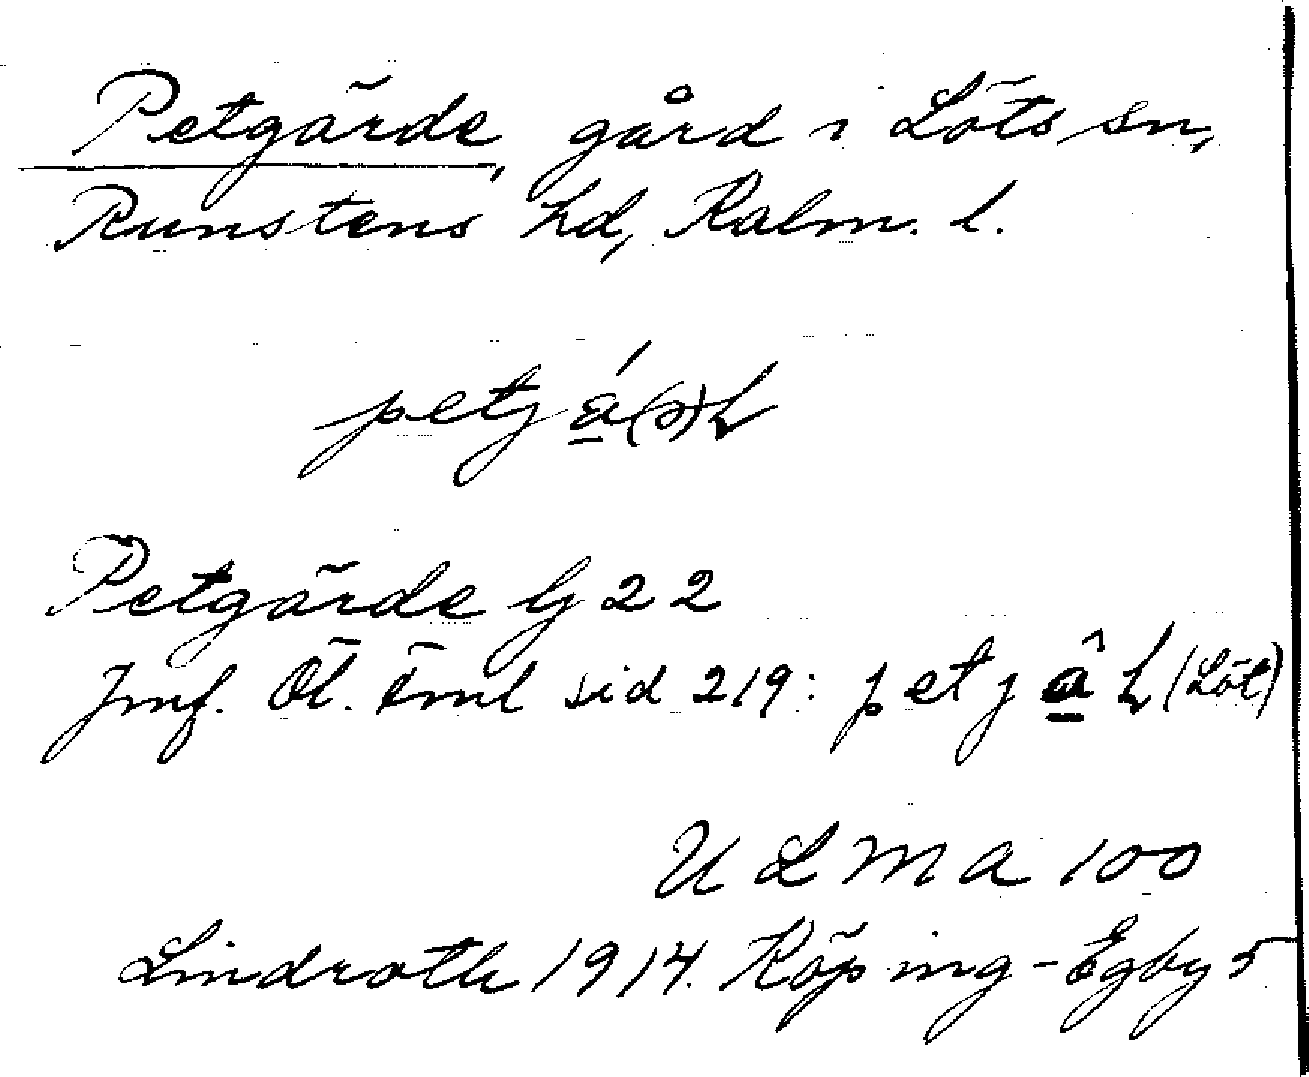 Petgärde, gård i Löts sn,
Runstens hd, Kalm. l.
petj
Petgärde G 22
Jmf. Öl. Fml sid 219: petj (Löt)
ULMA 100
Lindroth 1914. Köping-Egby 5